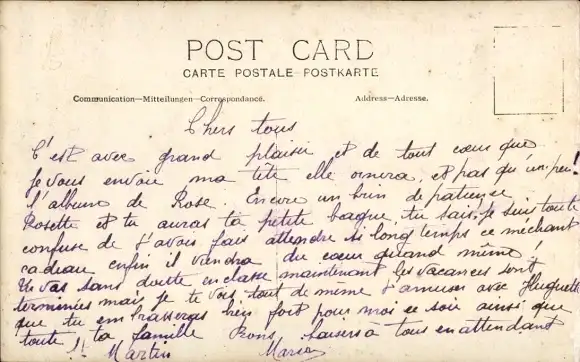 POST CARD
CARTE POSTALE-POSTKARTE
Communication—Mitteilungen—Correspondance. Address—Adresse.
Chers tous
C'est avec grand plaisir et de tout cœur que
Je vous envoie ma tête elle ornera, et pas qu'un peu!
l'album de Rose. Encore un brin de patience
Rosette et tu auras ta petite bague, tu sais, je suis toute
confuse de t'avoir fait attendre si longtemps ce méchant
cadeau enfin il viendra du cœur quand même!
Tu vas sans doute en classe maintenant les vacances sont
terminées mais je te vois tout de même t'amuser avec Huguette
que tu embrasseras bien fort pour moi ce soir ainsi que
toute ta famille Bons baisers à tous en attendant
!! Martin Maria